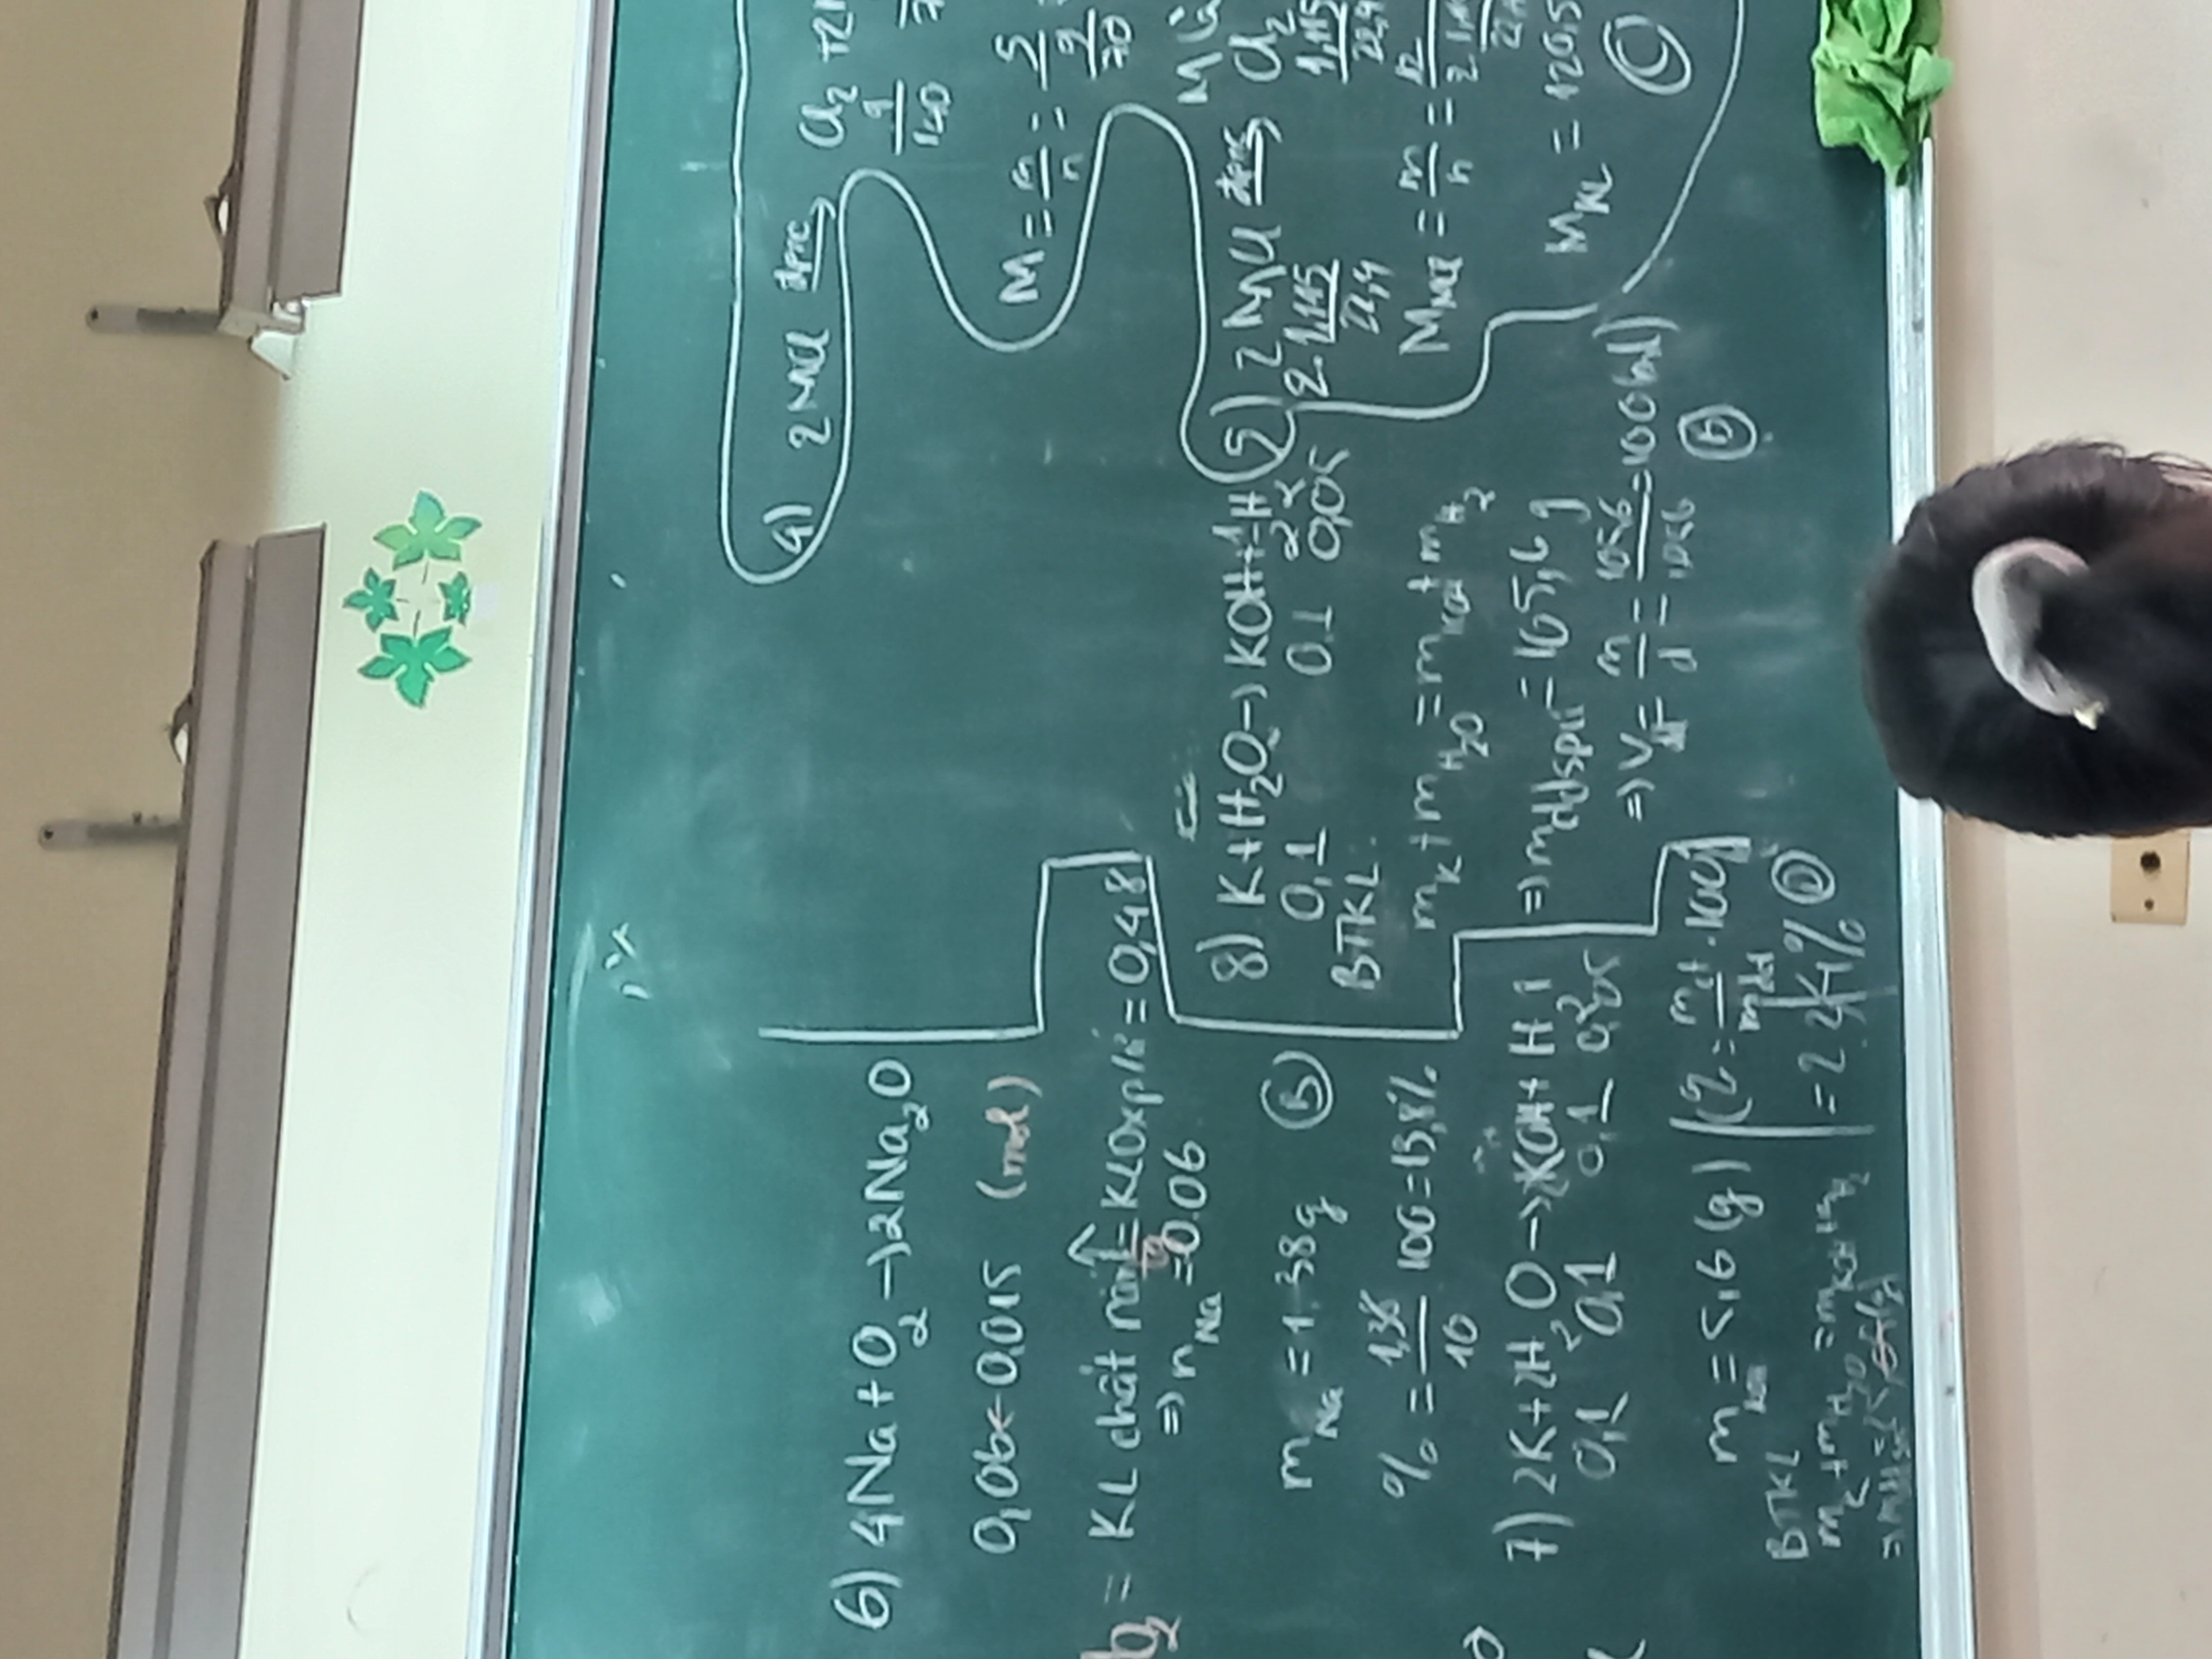 6) 4Na + O₂ → 2Na₂O
0,06 ← 0,015 (mol)
= KL chất rắn ↑ = KLOxp/ứ = 0,48
=> n Na = 0.06
m Na = 1.38g (B)
% = 1,38/10 100 = 13,8%
7) 2K + 2H₂O → 2KOH + H₂↑
0,1 0,1 0,1 0,05
m KOH = 5,6 (g)
BTKL
m K + m H₂O = m KOH + m H₂
C% = m ct / m dd . 100%
(D)
8) K + H₂O → KOH + 1/2 H₂
0,1 0.1 0,05
BTKL.
m K + m H₂O = m KOH + m H₂
=> m ddspứ = 105,6 g
=> V dd = m/d = 105,6/1,056 = 100 (ml)
4) 2MCl đpnc → Cl₂ + 2
9/140
M = m/n = 5 / 9/70
M là
5) 2MCl đpnc → Cl₂
2. 1,115/22,4 1,115/22,4
M MCl = m/n = 12 /
M KL = 120,5
(C)